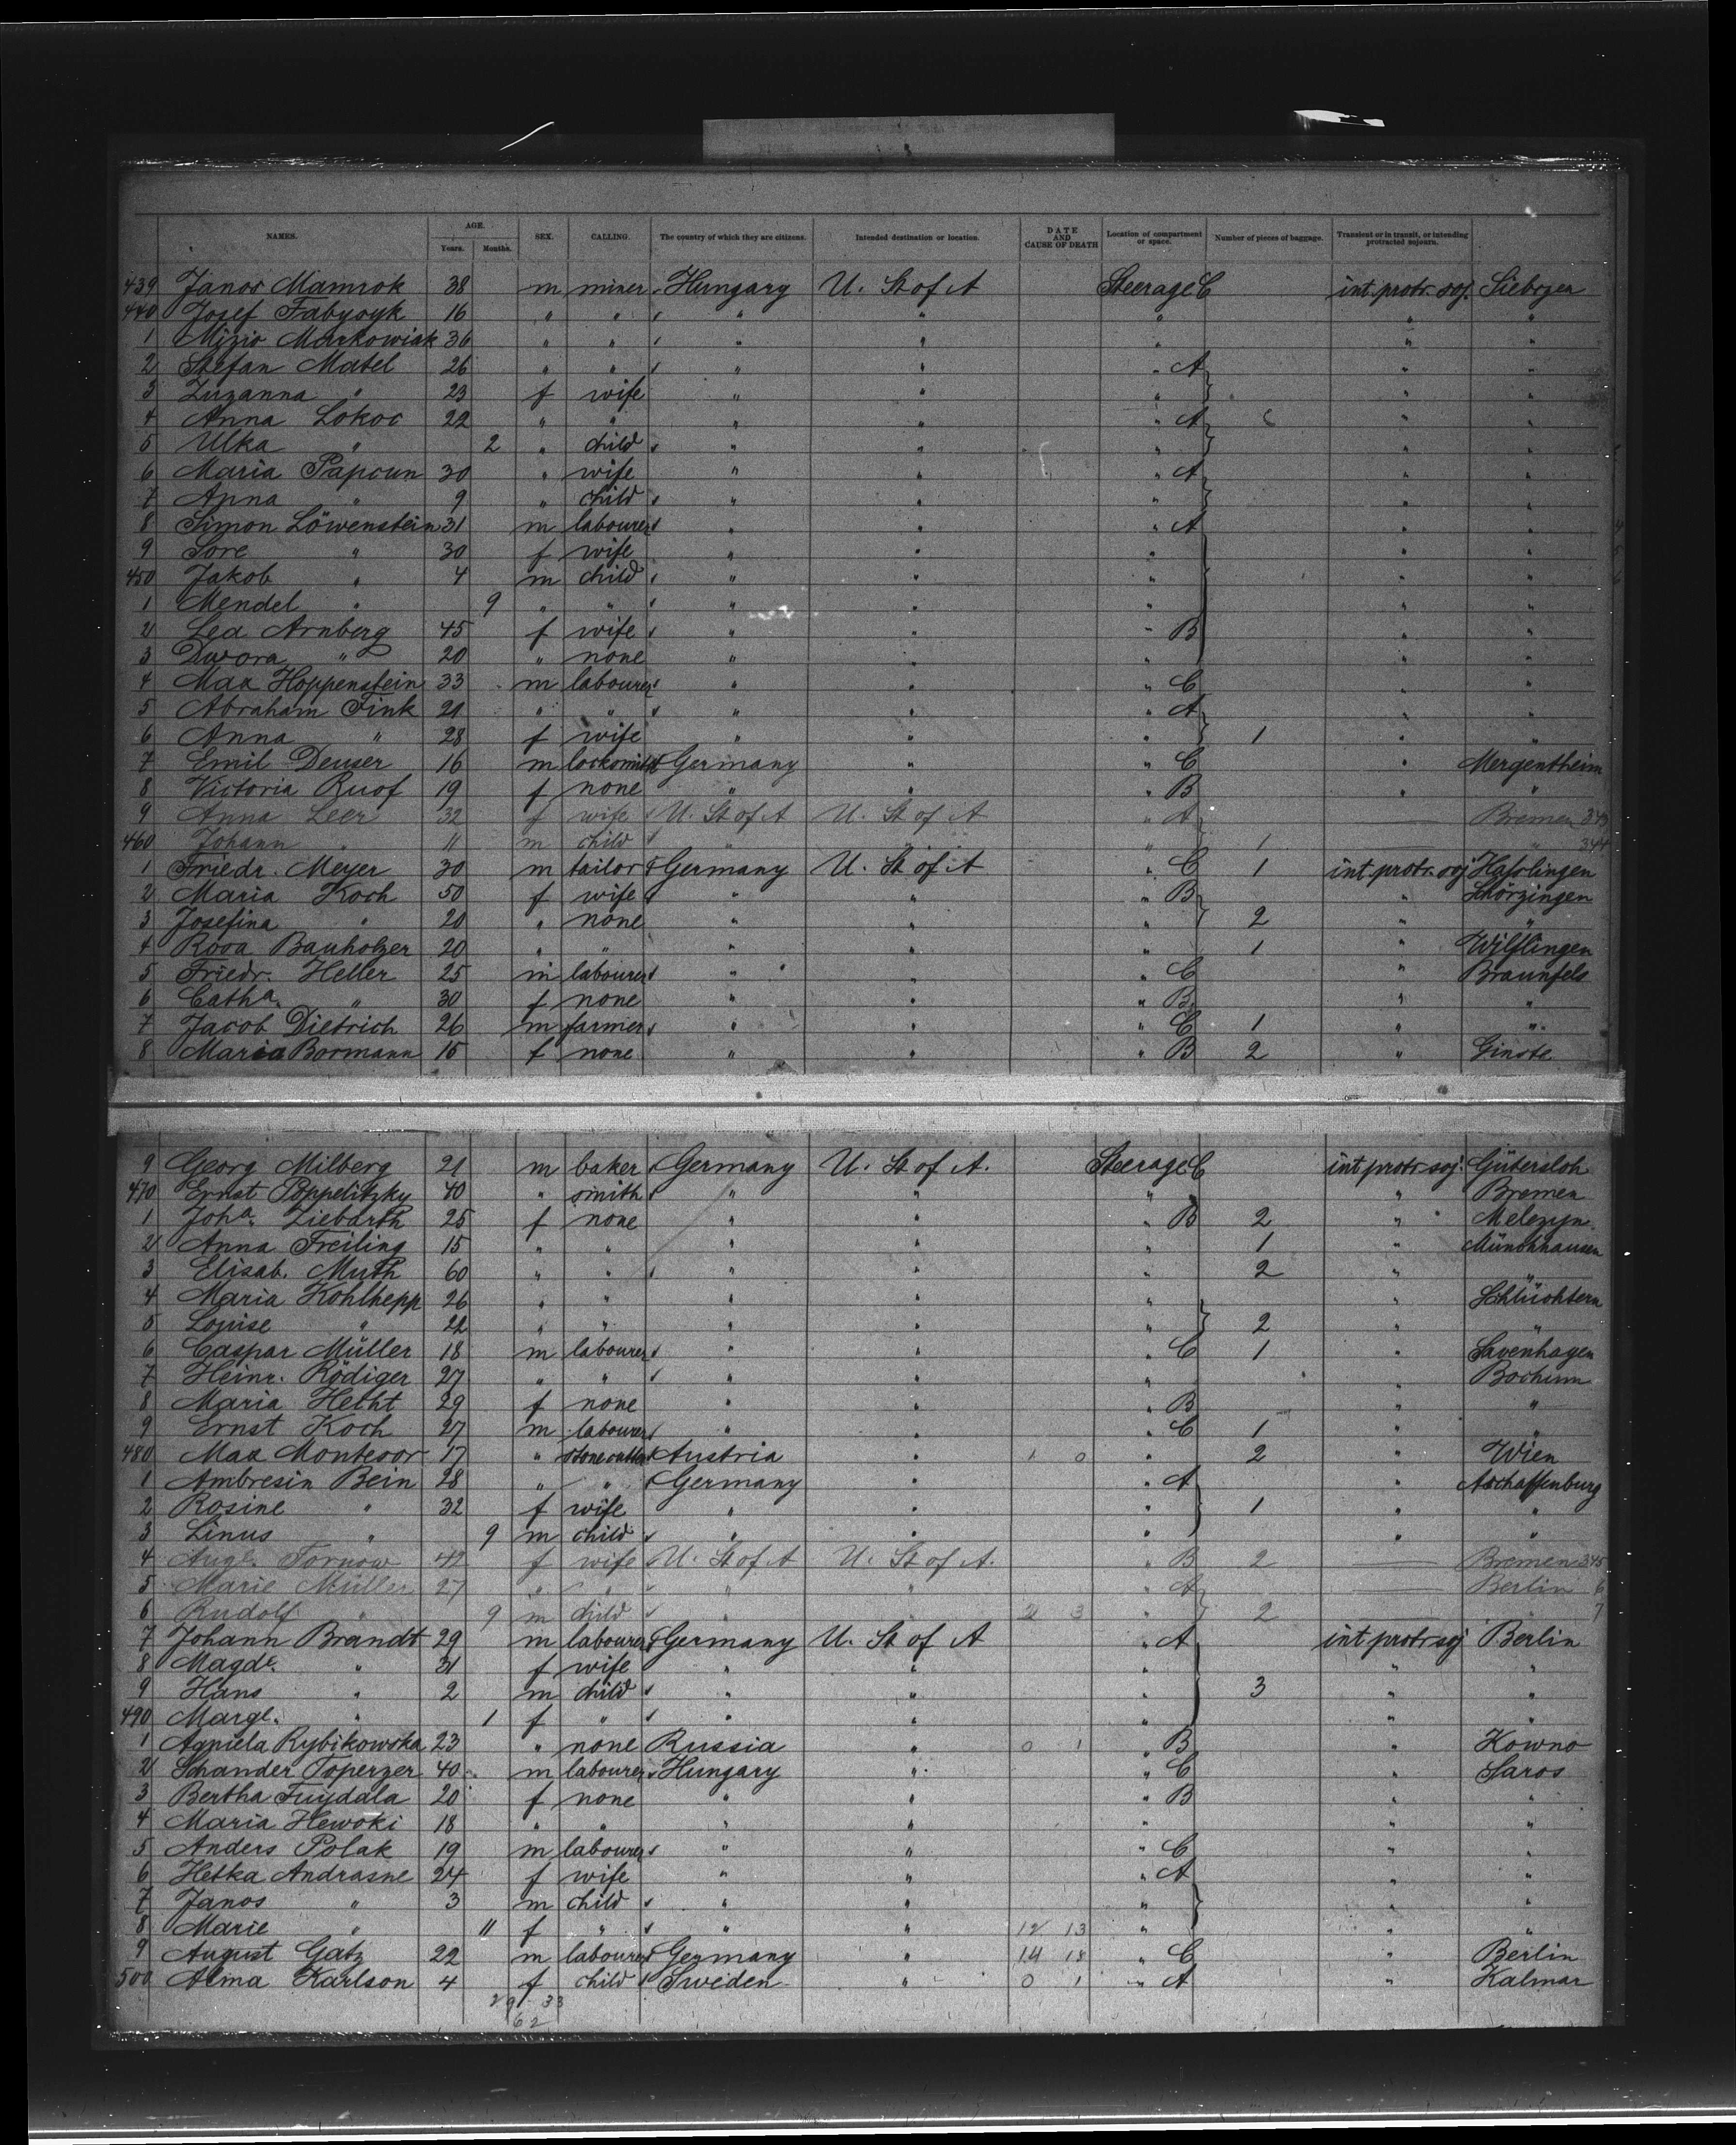 NAMES. AGE. Years. Months. SEX. CALLING. The country of which they are citizens. Intended destination or location. DATE AND CAUSE OF DEATH Location of compartment or space. Number of pieces of baggage. Transient or in transit, or intending protracted sojourn.
439 Janos Mamrok 38 m miner Hungary U. St of A Steerage C int. protr. soj.
440 Josef 16 " " " " " " "
1 Mizio Markowiak 36 " " " " " " "
2 Stefan Matel 26 " " " " " A " "
3 Zuzanna " 23 f wife " " " " "
4 Anna Lokoc 22 " " " " " A " "
5 Ulka " 2 " child " " " " "
6 Maria Papcun 30 " wife " " " A " "
7 Anna " 9 " child " " " " "
8 Simon Löwenstein 31 m labourer " " " A " "
9 Sore " 30 f wife " " " " "
450 Jakob " 4 m child " " " " "
1 Mendel " 9 " " " " " " "
2 Lea Arnberg 45 f wife " " " B " "
3 Dwora " 20 " none " " " " "
4 Max Hoppenstein 33 m labourer " " " C " "
5 Abraham Fink 21 " " " " " A " "
6 Anna " 28 f wife " " " 1 " "
7 Emil Deuser 16 m locksmith Germany " " C " Mergentheim
8 Victoria Ruof 19 f none " " " B " "
9 Anna Leer 32 f wife U. St of A U. St of A " A Bremen 343
460 Johann " 11 m child " " " 1 " 344
1 Friedr. Meyer 30 m tailor Germany U. St of A " C 1 int. protr. soj Hasslingen
2 Maria Koch 50 f wife " " " B " Schörzingen
3 Josefina " 20 " none " " " 2 " "
4 Rosa Bauholzer 20 " " " " " 1 " Wilflingen
5 Friedr. Heller 25 m labourer " " " C " Braunfels
6 Catha. " 30 f none " " " B " "
7 Jacob Dietrich 26 m farmer " " " C 1 " "
8 Maria Bormann 15 f none " " " B 2 " Ginste
9 Georg Milberg 21 m baker Germany U. St of A. Steerage C int protr soj. Gütersloh
470 Ernst Poppelitzky 40 " smith " " " " Bremen
1 Joha. Ziebarth 25 f none " " " B 2 "
2 Anna Freiling 15 " " " " " 1 " Münchhausen
3 Elisab. Muth 60 " " " " " 2 " "
4 Maria Kohlhepp 26 " " " " " " Schlüchtern
5 Louise " 22 " " " " " 2 " "
6 Caspar Müller 18 m labourer " " " C 1 " Savenhagen
7 Heinr. Rödiger 27 " " " " " " Bochum
8 Maria Hecht 29 f none " " " B " "
9 Ernst Koch 27 m labourer " " " C 1 " "
480 Max Montesor 17 " stonecutter Austria " 1 0 " 2 " Wien
1 Ambresin Bein 28 " " Germany " " A " Aschaffenburg
2 Rosine " 32 f wife " " " 1 " "
3 Linus " 9 m child " " " " "
4 Auge. Tornow 42 f wife U. St of A U. St of A. " B 2 Bremen 345
5 Marie Müller 27 " " " " " A Berlin 6
6 Rudolf " 9 m child " " 2 3 " 2 " 7
7 Johann Brandt 29 m labourer Germany U. St of A " A int protr soj Berlin
8 Magde. " 31 f wife " " " " "
9 Hans " 2 m child " " " 3 " "
490 Marge. " 1 f " " " " " "
1 Agniela Rybikowska 23 " none Russia " 0 1 " B " Kowno
2 Schander Toperzer 40 m labourer Hungary " " C " Saros
3 Bertha Fuyddla 20 f none " " " B " "
4 Maria Hewoki 18 " " " " " " "
5 Anders Polak 19 m labourer " " " C " "
6 Hetka Andrasne 24 f wife " " " A " "
7 Janos " 3 m child " " " " "
8 Marie " 11 f " " " 12 13 " " "
9 August Gatz 22 m labourer Germany " 14 18 " C " Berlin
500 Alma Karlson 4 f child Sweden " 0 1 " A " Kalmar
29 33
62